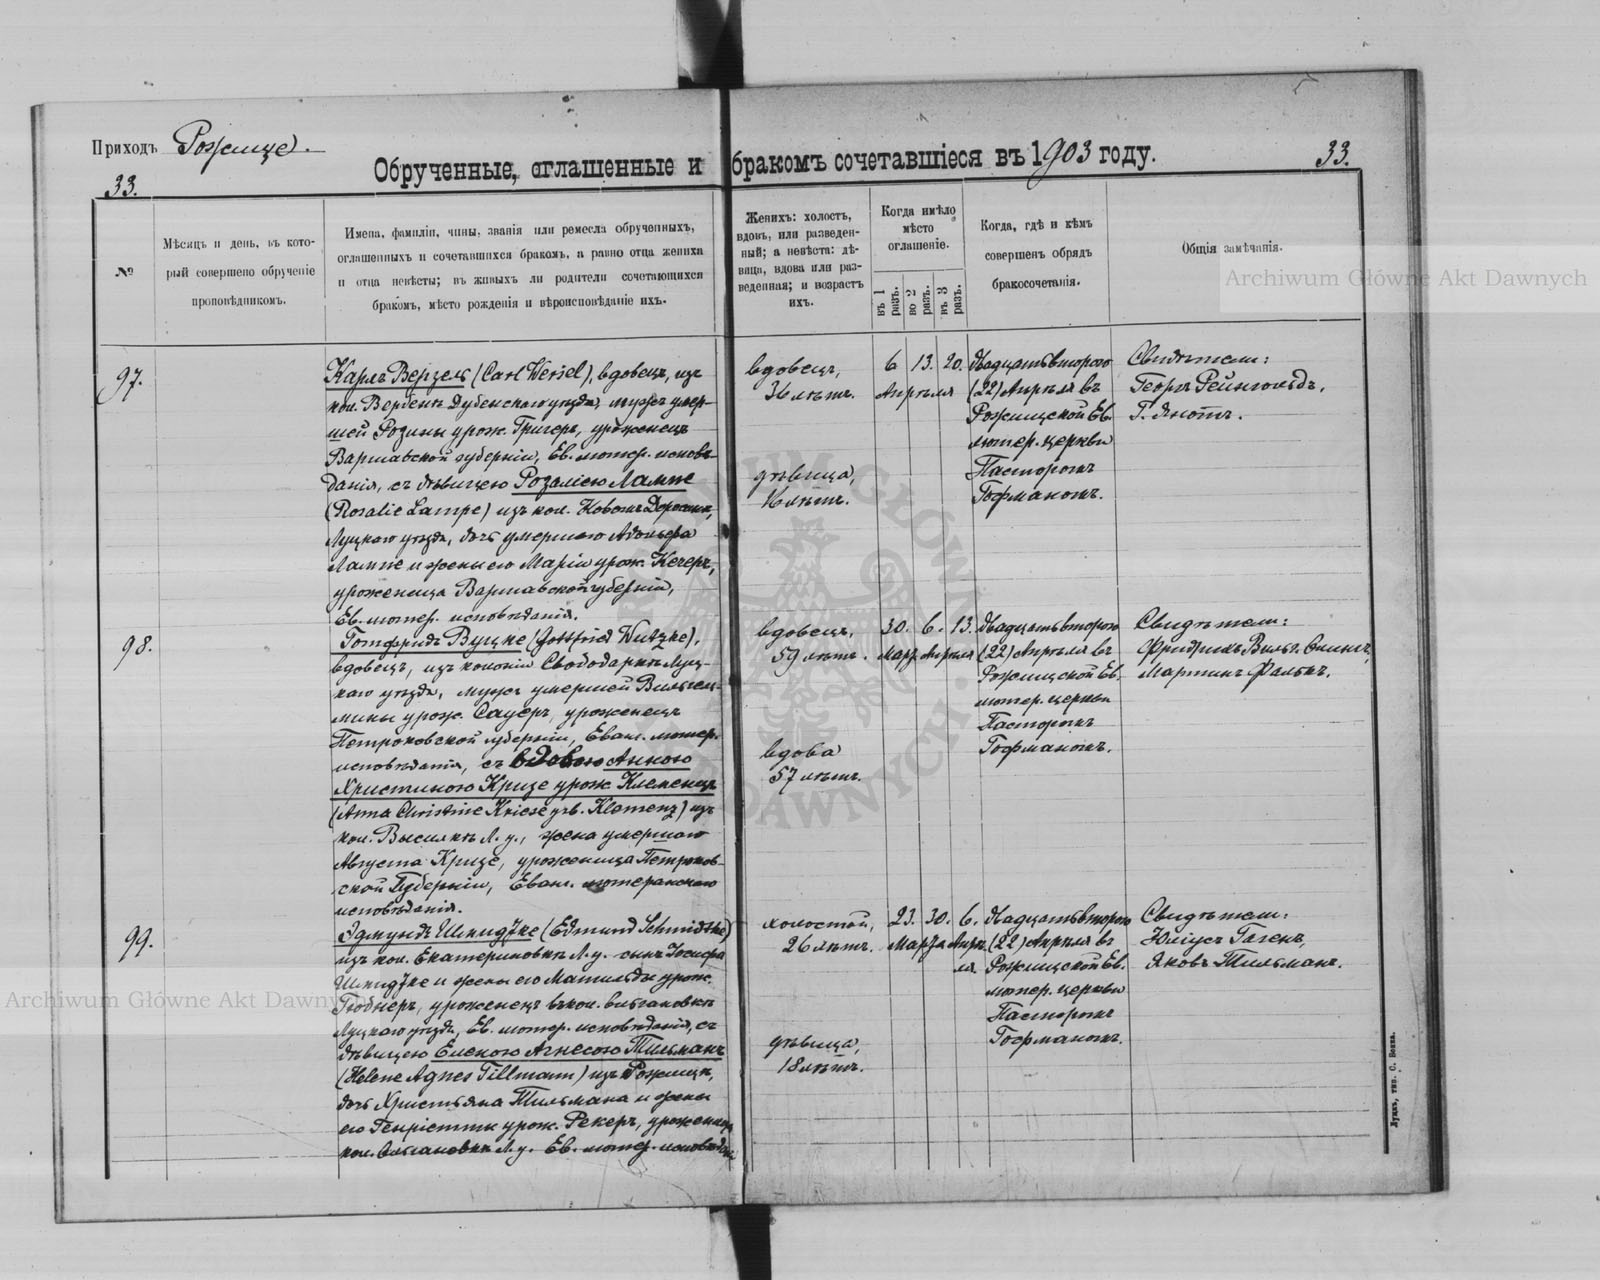 Приходъ Рожище.
Обрученные, оглашенные и бракомъ сочетавшіеся въ 1903 году.
33.
33.
№
Мѣсяцъ и день, въ кото-
рый совершено обрученіе
проповѣдникомъ.
Имена, фамиліи, чины, званія или ремесла обрученныхъ,
оглашенныхъ и сочетавшихся бракомъ, а равно отца жениха
и отца невѣсты; въ живыхъ ли родители сочетающихся
бракомъ, мѣсто рожденія и вѣроисповѣданіе ихъ.
Женихъ: холостъ,
вдовъ, или разведен-
ный; а невѣста: дѣ-
вица, вдова или раз-
веденная; и возрастъ
ихъ.
Когда имѣло
мѣсто
оглашеніе.
въ 1 разъ.
во 2 разъ.
въ 3 разъ.
Когда, гдѣ и кѣмъ
совершенъ обрядъ
бракосочетанія.
Общія замѣчанія.
Archiwum Główne Akt Dawnych
97.
Карлъ Верзель (Carl Wersel), вдовецъ, изъ
кол. Вербенъ Дубенскаго уѣзда, мужъ умер-
шей Розины урож. Григеръ, уроженецъ
Варшавской губерніи, Ев. лютер. исповѣ-
данія, съ дѣвицею Розаліею Лампе
(Rosalie Lampe) изъ кол. Новомъ
Луцкаго уѣзда, дочь умершаго Адольфа
Лампе и жены его Маріи урож. Кегеръ,
уроженица Варшавской губерніи,
Ев. лютер. исповѣданія.
вдовецъ,
36 лѣтъ.
дѣвица,
16 лѣтъ.
6 13. 20.
Апрѣля
Двадцать второго
(22) Апрѣля въ
Рожищской Ев.
лютер. церкви
Пасторомъ
Гофманомъ.
Свидѣтели:
Георгъ Рейнгольдъ,
Г. Янотъ.
98.
Готфридъ Вуцке (Gottfried Wutzke),
вдовецъ, изъ колоніи Свободарка Луц-
каго уѣзда, мужъ умершей Вильгель-
мины урож. Сауеръ, уроженецъ
Петроковской губерніи, Еванг. лютер.
исповѣданія, съ вдовою Анною
Христиною Кризе урож. Клеменцъ
(Anna Christine Kriese geb. Klemenz) изъ
кол. Высилкъ Л. у., жена умершаго
Августа Кризе, уроженица Петроков-
ской Губерніи, Еванг. лютеранскаго
исповѣданія.
вдовецъ,
59 лѣтъ.
вдова
57 лѣтъ.
30. 6. 13.
Март. Апрѣля
Двадцать второго
(22) Апрѣля въ
Рожищской Ев.
лютер. церкви
Пасторомъ
Гофманомъ.
Свидѣтели:
Фридрихъ Вильг.
Мартинъ Фалькъ.
99.
Эдмундъ Шмидтке (Edmund Schmidtke)
изъ кол. Екатериновкъ Л. у. сынъ Іосифа
Шмидтке и жены его Матильды урож.
Гюбнеръ, уроженецъ въ кол.
Луцкаго уѣзда, Ев. лютер. исповѣданія, съ
дѣвицею Еленою Агнесою Тильманъ
(Helene Agnes Tillmann) изъ Рожищъ,
дочь Христьяна Тильмана и жены
его Генріетты урож. Рекеръ, уроженица
кол. Л. у. Ев. лютер. исповѣданія
холостой,
26 лѣтъ.
дѣвица,
18 лѣтъ.
23. 30. 6.
Марта Апрѣ-
ля.
Двадцать второго
(22) Апрѣля въ
Рожищской Ев.
лютер. церкви
Пасторомъ
Гофманомъ.
Свидѣтели:
Юліусъ Гагенъ,
Яковъ Тильманъ.
Archiwum Główne Akt Dawnych
Луцкъ, тип. С. Бокка.